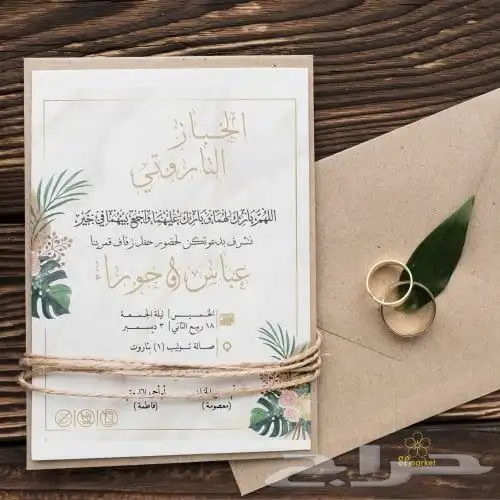 الخباز
التاروتي
اللهم بارك لهما وبارك عليهما واجمع بينهما في خير
نتشرف بدعوتكن لحضور حفل زفاف قمرينا
عباس & حوراء
الخميس | ليلة الجمعة
١٨ ربيع الثاني | ٣ ديسمبر
صالة توليب (١) بتاروت
(معصومة) (فاطمة)
حراج
market